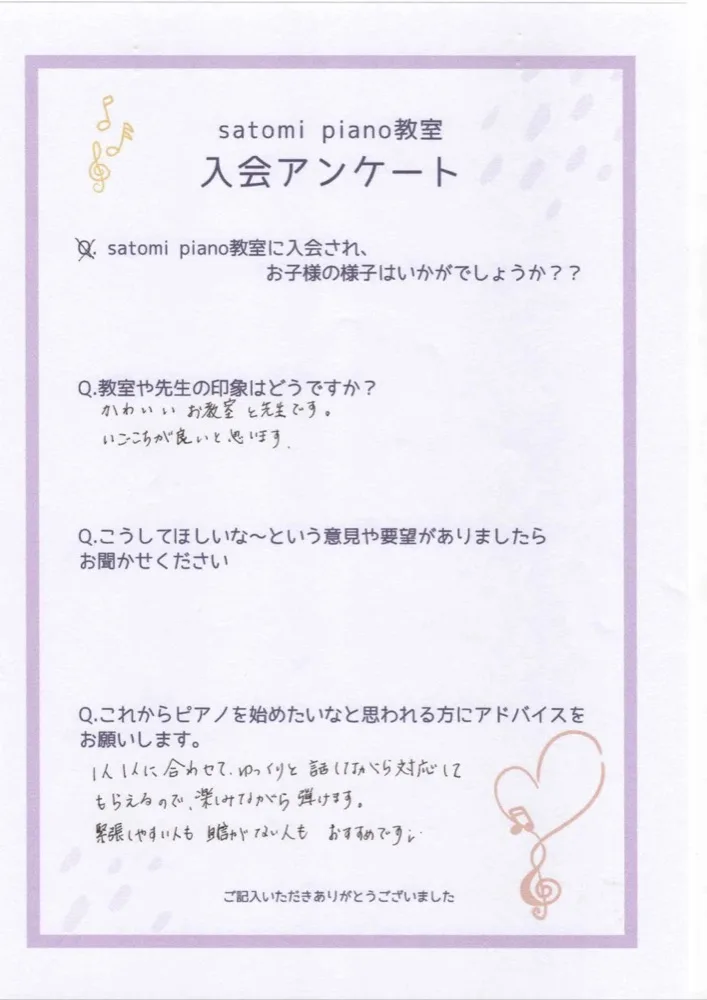 satomi piano教室
入会アンケート
Q. satomi piano教室に入会され、
お子様の様子はいかがでしょうか？？
Q.教室や先生の印象はどうですか？
かわいい お教室 と先生です。
いごこちが良いと思います.
Q.こうしてほしいな～という意見や要望がありましたら
お聞かせください
Q.これからピアノを始めたいなと思われる方にアドバイスを
お願いします。
1人1人に合わせて、ゆっくりと 話しながら対応して
もらえるので、楽しみながら 弾けます。
緊張しやすい人も 自信がない人も おすすめです
ご記入いただきありがとうございました